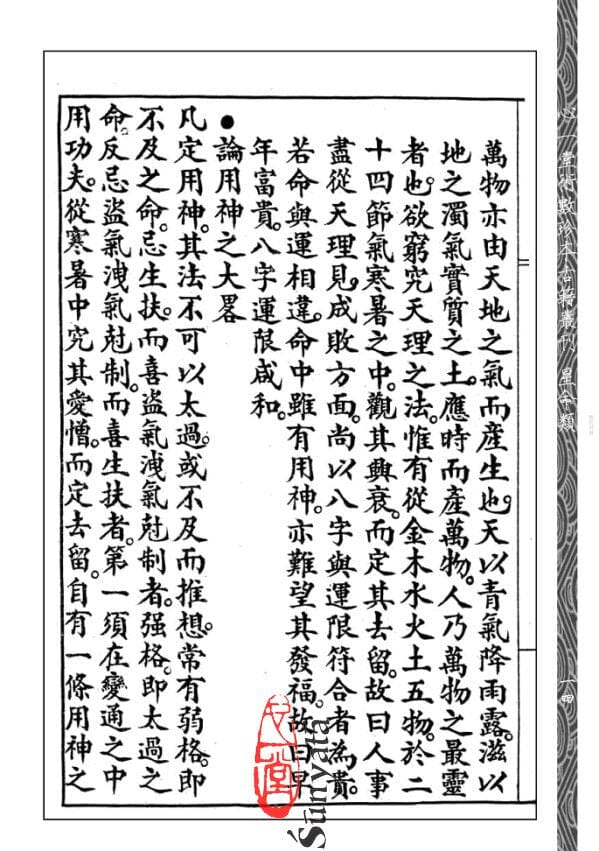 萬物亦由天地之氣而產生也。天以青氣降雨露。滋以
地之濁氣實質之土。應時而產萬物。人乃萬物之最靈
者也。欲窮究天理之法。惟有從金木水火土五物。於二
十四節氣寒暑之中。觀其興衰。而定其去留。故曰人事
盡從天理見。成敗方面。尚以八字與運限符合者為貴。
若命與運相違。命中雖有用神。亦難望其發福。故曰早
年富貴。八字運限咸和。
●論用神之大畧
凡定用神。其法不可以太過。或不及而推想。常有弱格。即
不及之命。忌生扶。而喜盜氣洩氣尅制者。强格。即太過之
命。反忌盜氣洩氣尅制。而喜生扶者。第一須在變通之中
用功夫。從寒暑中究其愛憎。而定去留。自有一條用神之
心一堂術數珍本古籍叢刊 星命類
一四
心一堂
Śūnyatā